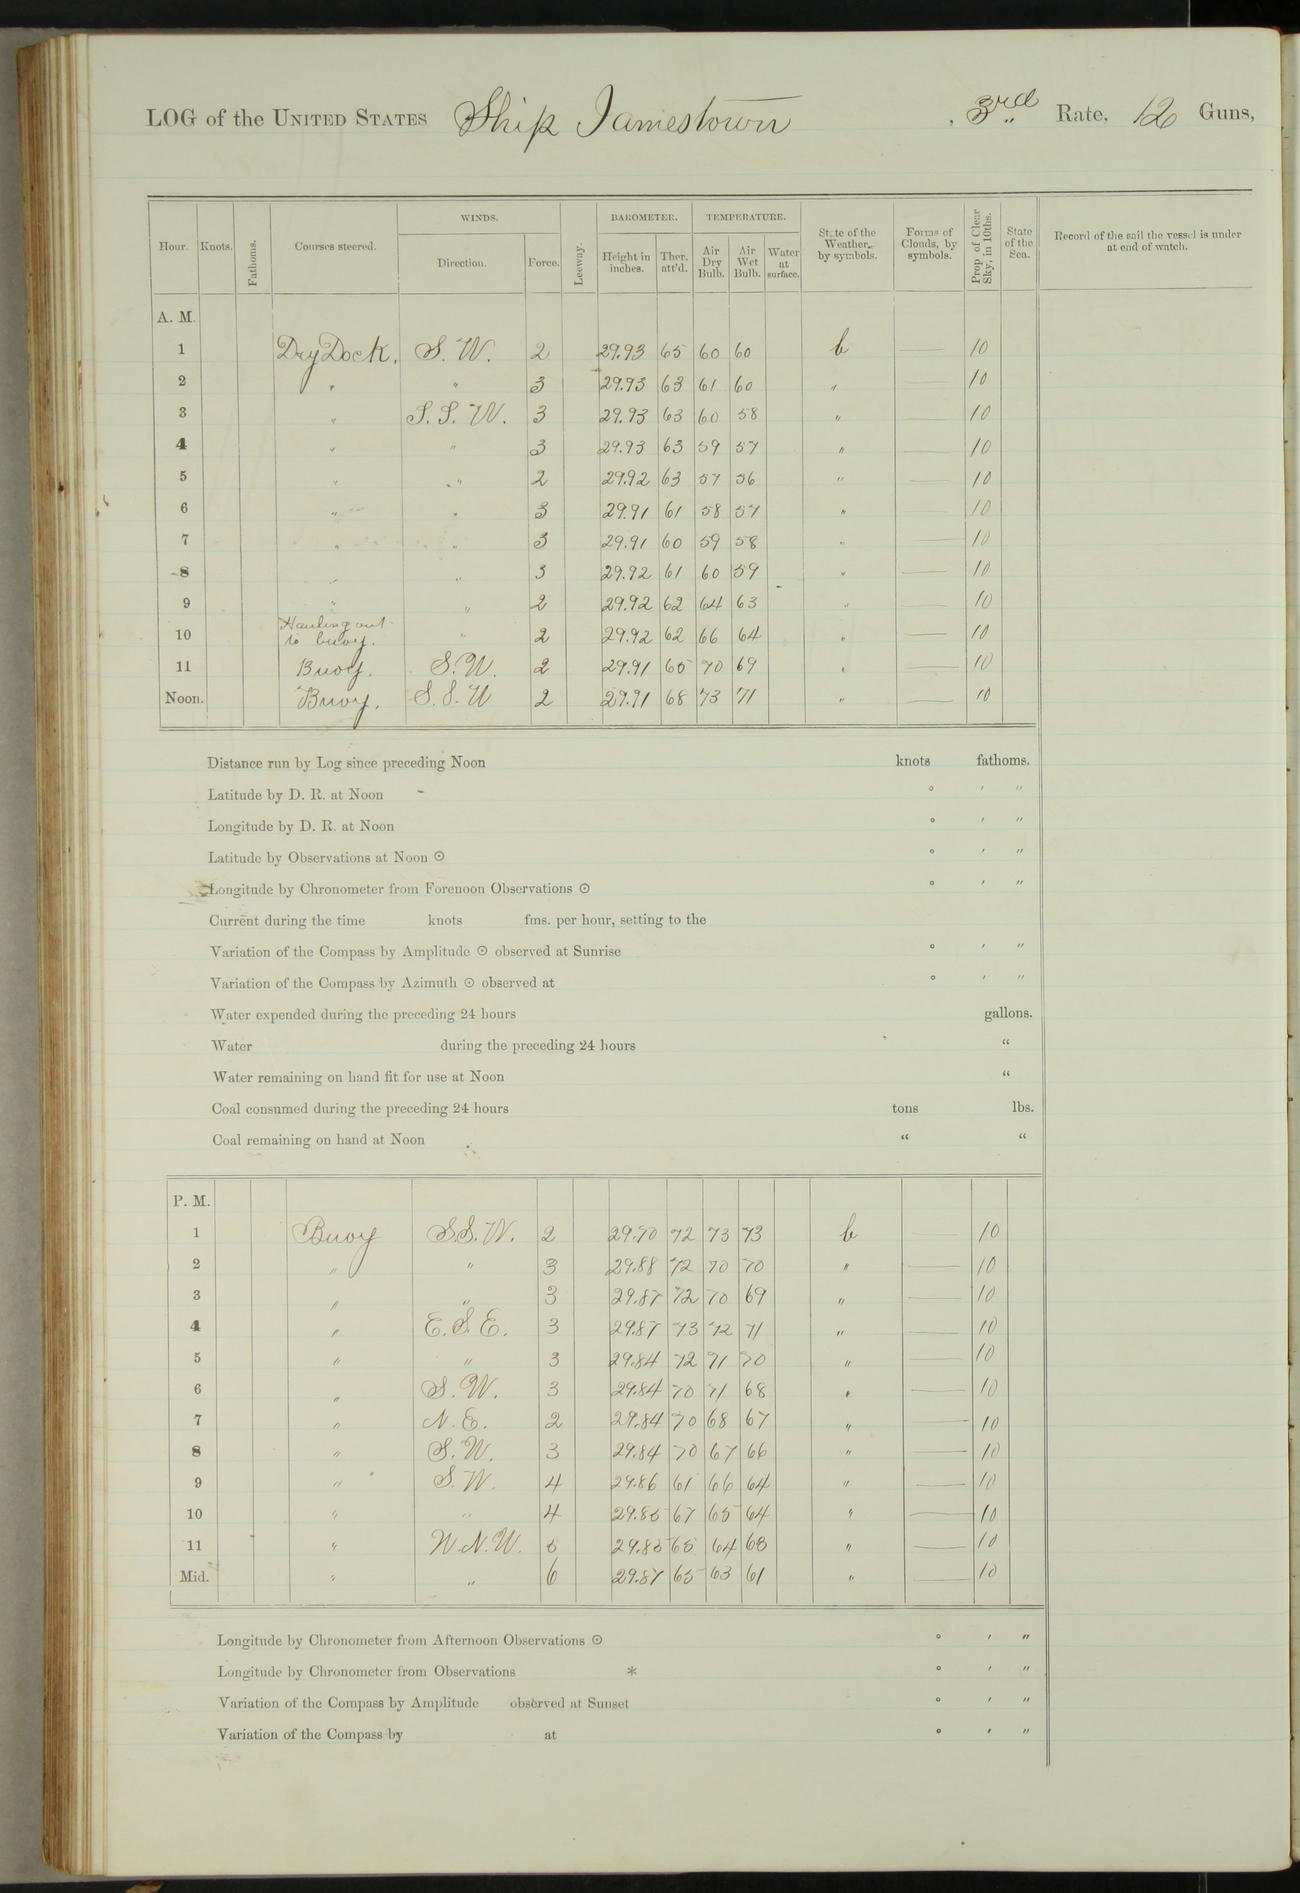 LOG of the UNITED STATES Ship Jamestown , 3rd Rate, 12 Guns,
Hour. Knots. Fathoms. Courses steered. WINDS. Direction. Force. Leeway. BAROMETER. Height in inches. Ther. att'd. TEMPERATURE. Air Dry Bulb. Air Wet Bulb. Water at surface. State of the Weather, by symbols. Forms of Clouds, by symbols. Prop of Clear Sky, in 10ths. State of the Sea. Record of the sail the vessel is under at end of watch.
A. M.
1 Dry Dock. S. W. 2 29.93 65 60 60 b — 10
2 " " 3 29.93 63 61 60 " — 10
3 " S. S. W. 3 29.93 63 60 58 " — 10
4 " " 3 29.93 63 59 57 " — 10
5 " " 2 29.92 63 57 56 " — 10
6 " " 3 29.91 61 58 57 " — 10
7 " " 3 29.91 60 59 58 " — 10
8 " " 3 29.92 61 60 59 " — 10
9 " " 2 29.92 62 64 63 " — 10
Hauling out
10 to buoy. " 2 29.92 62 66 64 " — 10
11 Buoy. S. W. 2 29.91 65 70 69 " — 10
Noon. Buoy. S. S. W 2 29.91 68 73 71 " — 10
Distance run by Log since preceding Noon knots fathoms.
Latitude by D. R. at Noon ° ′ ″
Longitude by D. R. at Noon ° ′ ″
Latitude by Observations at Noon ⊙ ° ′ ″
Longitude by Chronometer from Forenoon Observations ⊙ ° ′ ″
Current during the time knots fms. per hour, setting to the
Variation of the Compass by Amplitude ⊙ observed at Sunrise ° ′ ″
Variation of the Compass by Azimuth ⊙ observed at ° ′ ″
Water expended during the preceding 24 hours gallons.
Water during the preceding 24 hours "
Water remaining on hand fit for use at Noon "
Coal consumed during the preceding 24 hours tons lbs.
Coal remaining on hand at Noon " "
P. M.
1 Buoy S. S. W. 2 72 73 73 b — 10
2 " " 3 29.88 72 70 70 " — 10
3 " " 3 29.87 72 70 69 " — 10
4 " E. S. E. 3 29.87 73 72 71 " — 10
5 " " 3 29.84 72 71 70 " — 10
6 " S. W. 3 29.84 70 71 68 " — 10
7 " N. E. 2 29.84 70 68 67 " — 10
8 " S. W. 3 29.84 70 67 66 " — 10
9 " S. W. 4 29.86 61 66 64 " — 10
10 " " 4 67 65 64 " — 10
11 " W. N. W. 65 64 " — 10
Mid. " " 6 29.87 65 63 61 " — 10
Longitude by Chronometer from Afternoon Observations ⊙ ° ′ ″
Longitude by Chronometer from Observations * ° ′ ″
Variation of the Compass by Amplitude observed at Sunset ° ′ ″
Variation of the Compass by at ° ′ ″